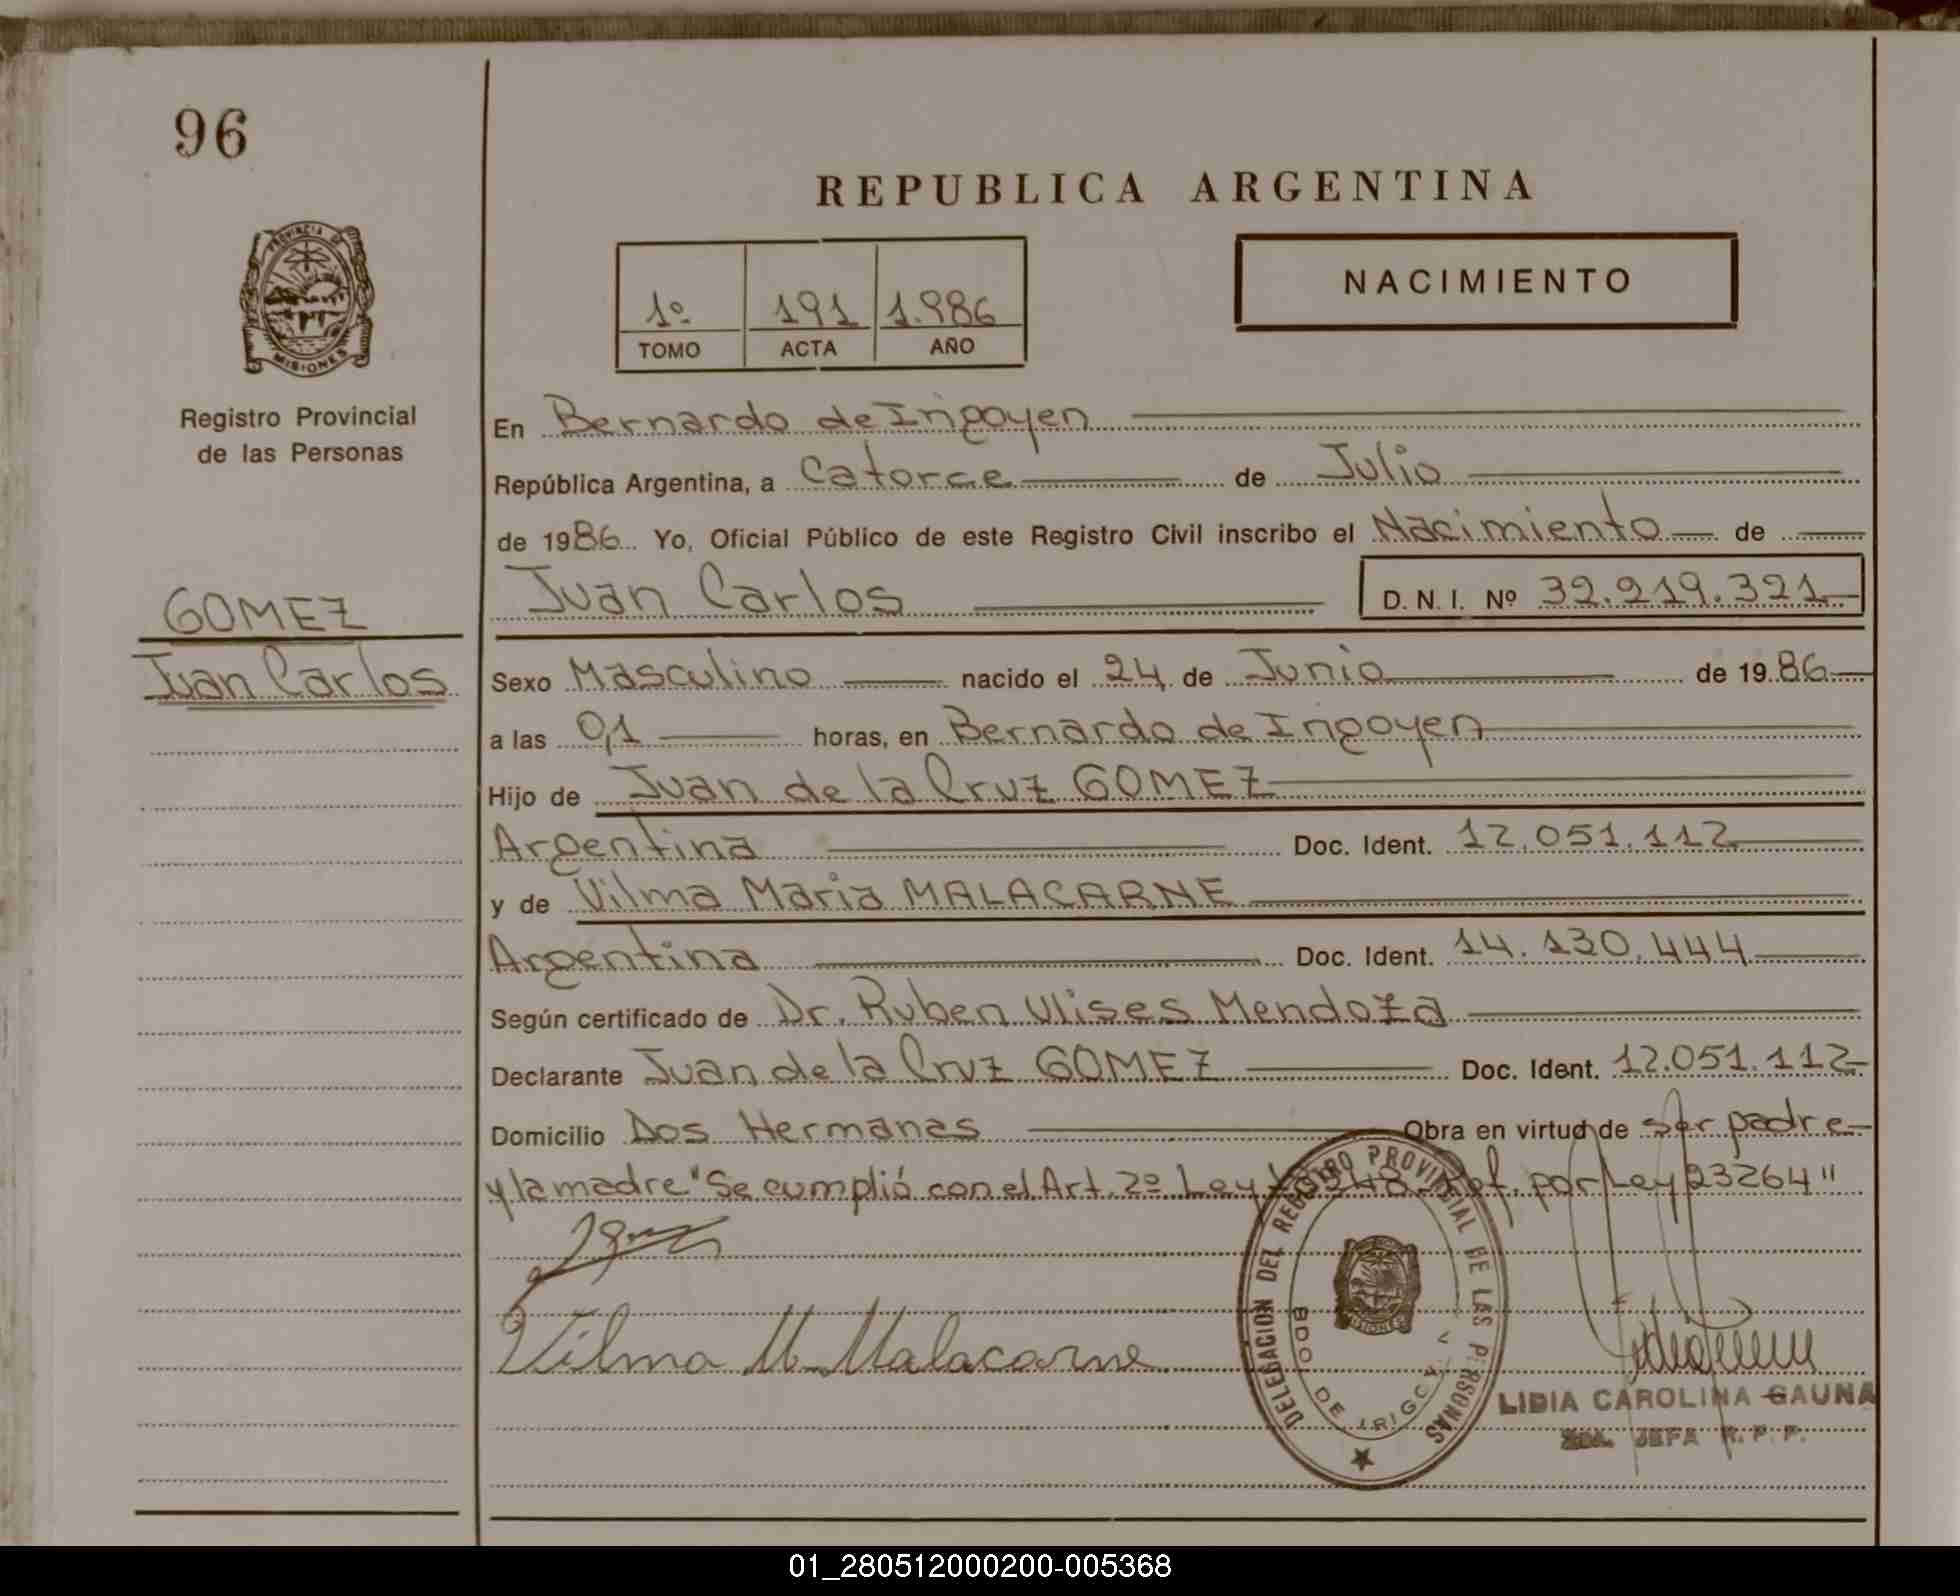 96
REPUBLICA ARGENTINA
PROVINCIA DE
MISIONES
1º 191 1.986
TOMO ACTA AÑO
NACIMIENTO
Registro Provincial
de las Personas
En Bernardo de Irigoyen
República Argentina, a Catorce de Julio
de 1986 Yo, Oficial Público de este Registro Civil inscribo el Nacimiento de
Juan Carlos D. N. I. Nº 32.219.321
GOMEZ
Juan Carlos
Sexo Masculino nacido el 24 de Junio de 1986
a las 0,1 horas, en Bernardo de Irigoyen
Hijo de Juan de la Cruz GOMEZ
Argentina Doc. Ident. 12.051.112
y de Vilma Maria MALACARNE
Argentina Doc. Ident. 14.130.444
Según certificado de Dr. Ruben Ulises Mendoza
Declarante Juan de la Cruz GOMEZ Doc. Ident. 12.051.112
Domicilio Dos Hermanas Obra en virtud de ser padre
y la madre "Se cumplió con el Art. 2º Ley Ref. por Ley 23264"
Vilma M. Malacarne
DELEGACION DEL REGISTRO PROVINCIAL DE LAS PERSONAS
BDO. DE IRIGOYEN
MISIONES
LIDIA CAROLINA GAUNA
JEFA R. P. P.
01_280512000200-005368